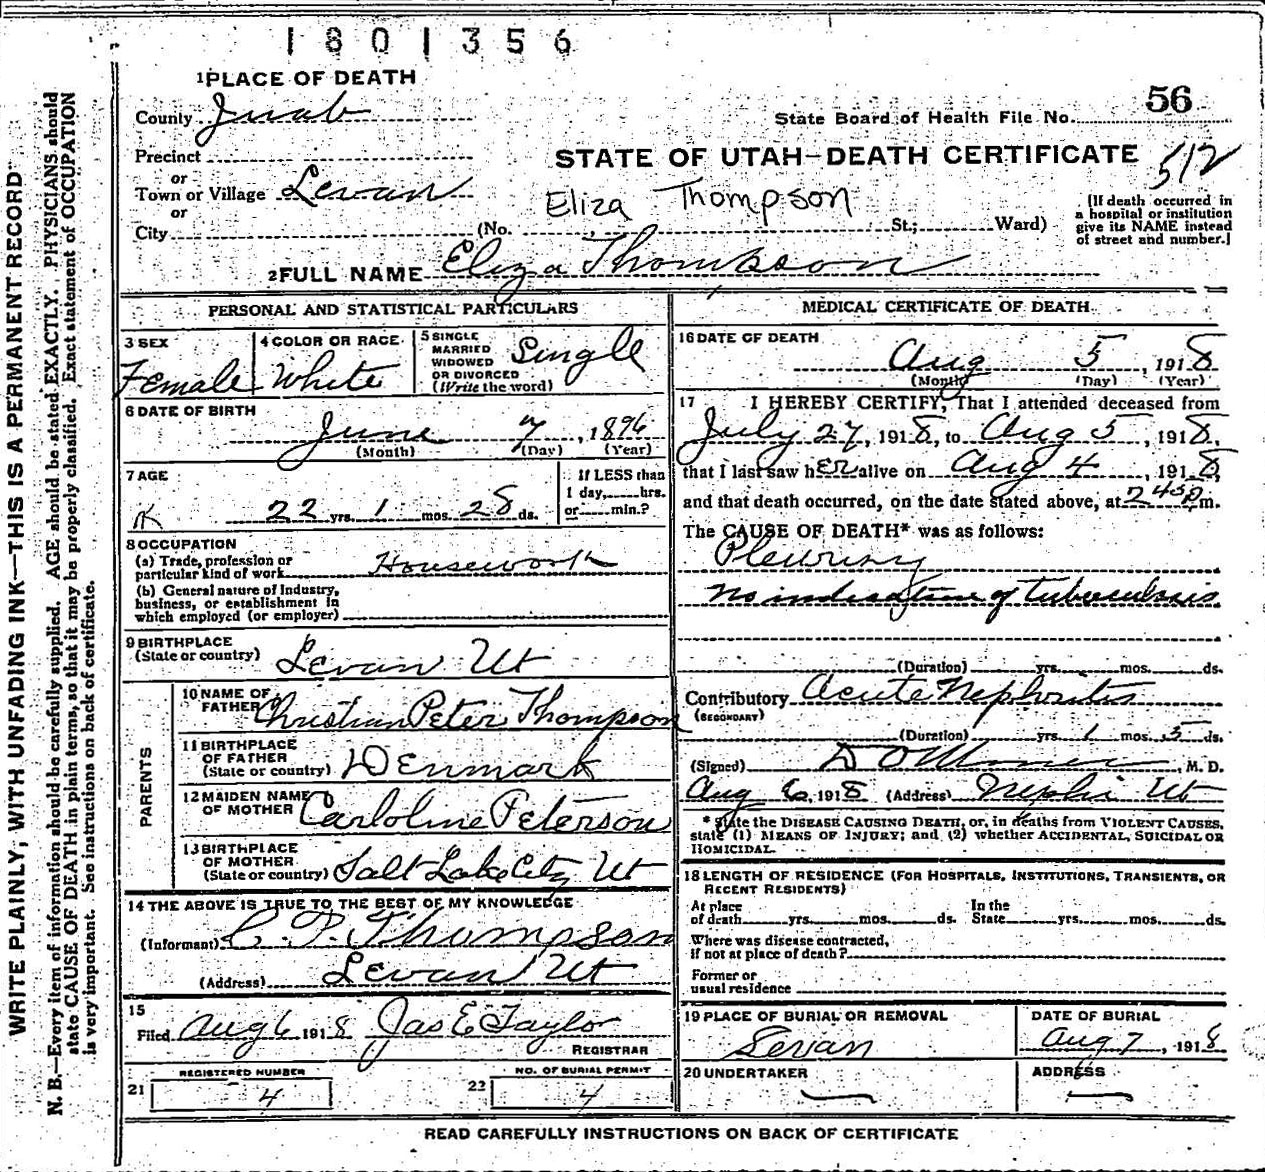 1801356
1 PLACE OF DEATH
County Juab
56
State Board of Health File No.
Precinct
STATE OF UTAH—DEATH CERTIFICATE 512
or
Town or Village Levan
or
Eliza Thompson
[If death occurred in
a hospital or institution
give its NAME instead
of street and number.]
City (No. St.; Ward)
2 FULL NAME Eliza Thompson
PERSONAL AND STATISTICAL PARTICULARS
3 SEX
Female
4 COLOR OR RACE
White
5 SINGLE
MARRIED
WIDOWED
OR DIVORCED
(Write the word)
Single
6 DATE OF BIRTH
June 7, 1896
(Month) (Day) (Year)
7 AGE
22 yrs. 1 mos. 28 ds.
If LESS than
1 day, hrs.
or min.?
8 OCCUPATION
(a) Trade, profession or
particular kind of work Housework
(b) General nature of Industry,
business, or establishment in
which employed (or employer)
9 BIRTHPLACE
(State or country) Levan Ut
PARENTS
10 NAME OF
FATHER Christian Peter Thompson
11 BIRTHPLACE
OF FATHER
(State or country) Denmark
12 MAIDEN NAME
OF MOTHER Carloline Peterson
13 BIRTHPLACE
OF MOTHER
(State or country) Salt Lake City Ut
14 THE ABOVE IS TRUE TO THE BEST OF MY KNOWLEDGE
(Informant) C. P. Thompson
(Address) Levan Ut
15
Filed Aug 6 1918 Jas E Taylor
REGISTRAR
REGISTERED NUMBER
21 4
NO. OF BURIAL PERMIT
22 4
MEDICAL CERTIFICATE OF DEATH
16 DATE OF DEATH
Aug 5, 1918
(Month) (Day) (Year)
17 I HEREBY CERTIFY, That I attended deceased from
July 27, 1918, to Aug 5, 1918,
that I last saw her alive on Aug 4, 1918,
and that death occurred, on the date stated above, at 245 p m.
The CAUSE OF DEATH* was as follows:
Pleurisy
no indication of tuberculosis
(Duration) yrs. mos. ds.
Contributory Acute Nephritis
(SECONDARY)
(Duration) yrs. 1 mos. 5 ds.
(Signed) M. D.
Aug 6, 1918 (Address) Nephi Ut
* State the DISEASE CAUSING DEATH, or, in deaths from VIOLENT CAUSES,
state (1) MEANS OF INJURY; and (2) whether ACCIDENTAL, SUICIDAL OR
HOMICIDAL.
18 LENGTH OF RESIDENCE (FOR HOSPITALS, INSTITUTIONS, TRANSIENTS, OR
RECENT RESIDENTS)
At place
of death yrs. mos. ds.
In the
State yrs. mos. ds.
Where was disease contracted,
if not at place of death?
Former or
usual residence
19 PLACE OF BURIAL OR REMOVAL
Levan
DATE OF BURIAL
Aug 7, 1918
20 UNDERTAKER
—
ADDRESS
—
READ CAREFULLY INSTRUCTIONS ON BACK OF CERTIFICATE
WRITE PLAINLY, WITH UNFADING INK—THIS IS A PERMANENT RECORD
N. B.—Every item of information should be carefully supplied. AGE should be stated EXACTLY. PHYSICIANS should
state CAUSE OF DEATH in plain terms, so that it may be properly classified. Exact statement of OCCUPATION
is very important. See instructions on back of certificate.